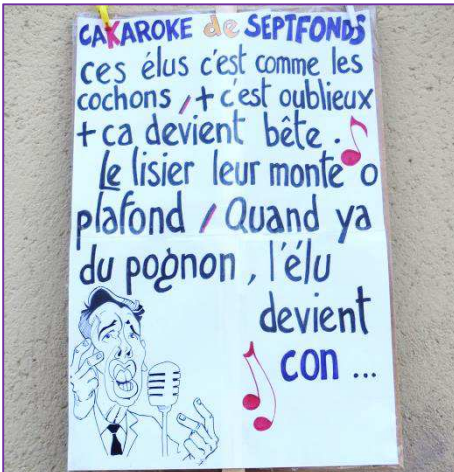 CAKAROKE de SEPTFONDS
ces élus c'est comme les
cochons / + c'est oublieux
+ ca devient bête.
Le lisier leur monte o
plafond / Quand ya
du pognon, l'élu
devient
con ...